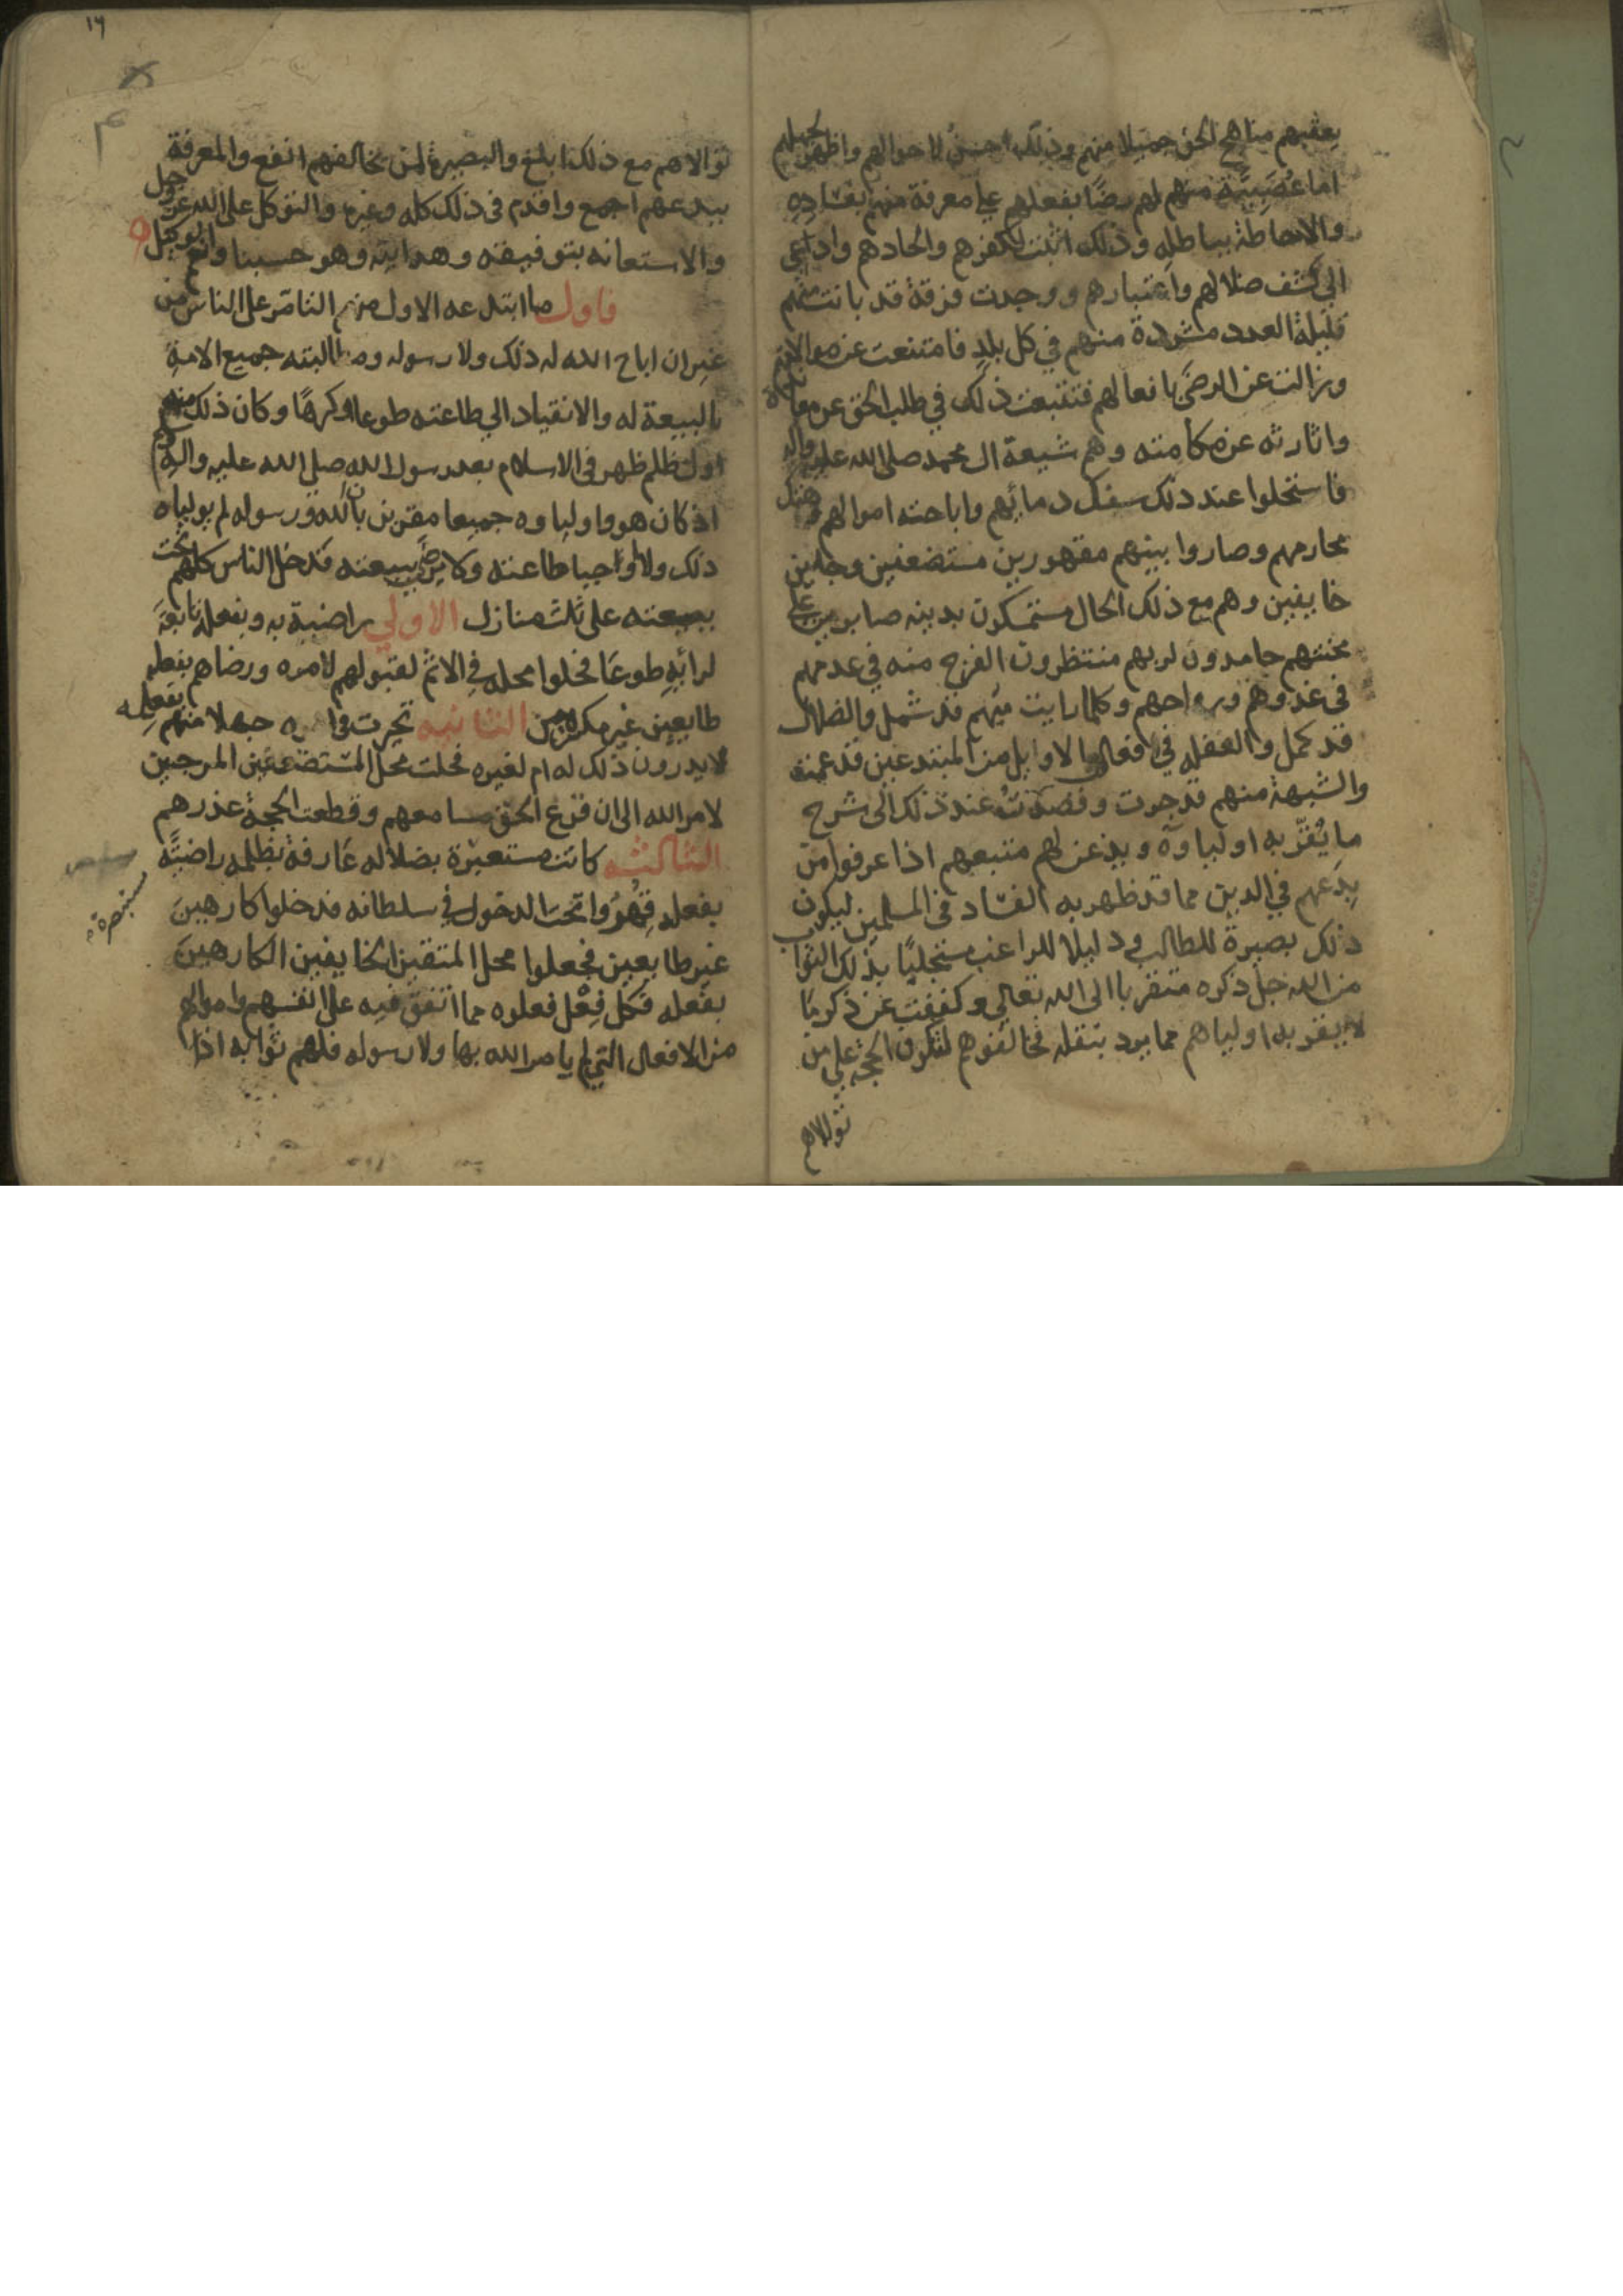 يعقبهم مناهج الحق جميلا منهم وذلك احسن لاحوالهم واظهر لجهلهم
اما عُصَبِيَّة منهم لهم رضًا بفعلهم على معرفة منهم بفساده
والاحاطة بباطله وذلك اثبت لكفرهم والحادهم وادعى
الى كشف ضلالهم واعتبارهم ووجدت فرقة قد بانت منهم
قليلة العدد مشردة منهم في كل بلد فامتنعت عن موالاتهم
وزالت عن الرضى بافعالهم فتتبعت ذلك في طلب الحق عن معادنه
واثارته عن مكامنه وهم شيعة ال محمد صلى الله عليه واله
فاستحلوا عند ذلك سفك دمائهم واباحة اموالهم وهتك
محارمهم وصاروا بينهم مقهورين مستضعفين وجلين
خايفين وهم مع ذلك الحال متمسكون بدينه صابرين على
محنتهم حامدون لربهم منتظرون الفرج منه في
في غدوهم ورواحهم وكلما رايت فيهم قد شمل والضلال
قد كمل والغفله في افعال الاوايل من المبتدعين قد عمته
والشبهة منهم قد جرت وقصدتُ عند ذلك الى شرح
ما يُقرّ به اولياوه ويذعن لهم متبعهم اذا عرفوا من
بِدَعهم في الدين مما قد ظهر به الفساد في المسلمين ليكون
ذلك بصيرة للطالب ودليلا للراغب مستجلبًا بذلك الثواب
من الله جل ذكره متقربا الى الله تعالى وكففت عن ذكر ما
لا يقر به اولياهم مما يرد بنقله مخالفوهم لتكون الحجة على من
توالاهم
١٦
توالاهم مع ذلك ابلغ والبصيرة لمن يخالفهم انفع والمعرفة
ببدعهم اجمع واقدم في ذلك كله وغيره والتوكل على الله عز وجل
والاستعانه بتوفيقه وهدايته وهو حسبنا ونعم الوكيل
فاول ما ابتدعه الاول منهم التامر على الناس من
غير ان اباح الله له ذلك ولا رسوله ومطالبته جميع الامة
بالبيعة له والانقياد الى طاعته طوعا او كرهًا وكان ذلك منه
اول ظلم ظهر في الاسلام بعد رسول الله صلى الله عليه واله
اذ كان هو واولياوه جميعا مقرين بان الله ورسوله لم يولياه
ذلك ولا اوجبا طاعته ولا بيعته فدخل الناس كلهم تحت
بيعته على ثلث منازل الاولى راضية به وبفعله تابعة
لرائه طوعًا فحلوا محله في الاثم لقبولهم لامره ورضاهم بفعله
طايعين غير مكرهين الثانيه تحيرت في امره جهلا منهم بفعله
لا يدرون ذلك له ام لغيره فحلت محل المستضعفين المرجين
لامر الله الى ان قرع الحق مسامعهم وقطعت الحجة عذرهم
الثالثه كانت مستعيرة بضلاله عارفة بظلمه راضيَّه
مستبصرة
بفعله قُهِرُوا تحت الدخول في سلطانه فدخلوا كارهين
غير طايعين فجعلوا محل المتقين الخايفين الكارهين
بفعله فكل فِعْل فعلوه مما اتفق فيه على انفسهم واموالهم
من الافعال التي لم يامر الله بها ولا رسوله فلهم ثوابه اذا